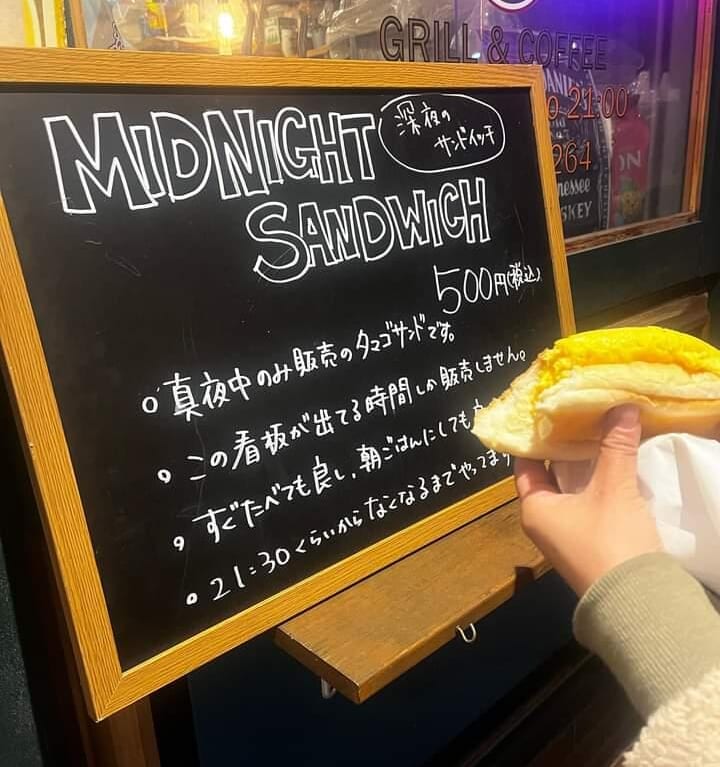 GRILL & COFFEE
21:00
MIDNIGHT
深夜の
サンドイッチ
SANDWICH
500円(税込)
真夜中のみ販売のタマゴサンドです。
この看板が出てる時間しか販売しません。
すぐたべても良し、朝ごはんにしても
21:30くらいからなくなるまでやってます
264
nessee
KEY